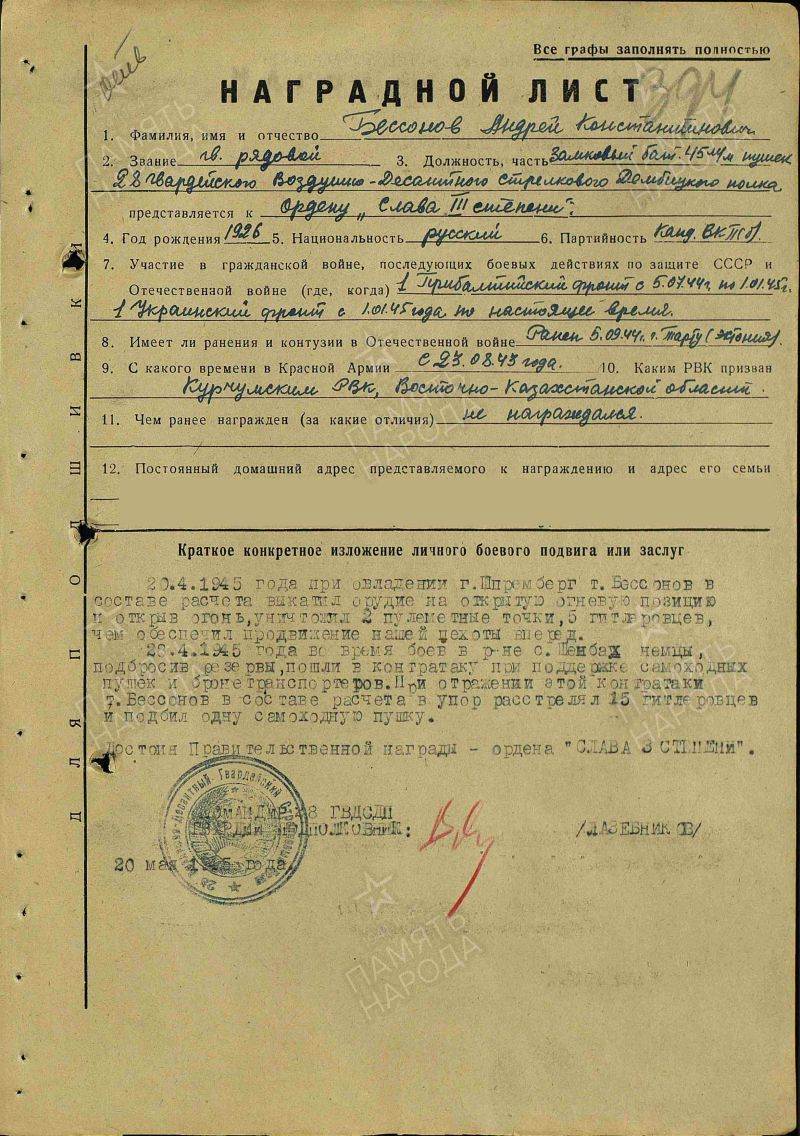 Все графы заполнять полностью
НАГРАДНОЙ ЛИСТ
394
1. Фамилия, имя и отчество Бессонов Андрей Константинович
2. Звание гв. рядовой 3. Должность, часть Замковый бат. 45 м/м пушек
28 Гвардейского Воздушно-Десантного Стрелкового Домбицкого полка
представляется к Ордену „Слава III степени".
4. Год рождения 1926 5. Национальность русский 6. Партийность Канд. ВКП(б).
7. Участие в гражданской войне, последующих боевых действиях по защите СССР и
Отечественной войне (где, когда) 1 Прибалтийский фронт с 5.07.44г. по 1.01.45г.
1 Украинский фронт с 1.01.45 года по настоящее время.
8. Имеет ли ранения и контузии в Отечественной войне Ранен 5.09.44г. г. Тарту (Эстония).
9. С какого времени в Красной Армии С 23.08.43 года. 10. Каким РВК призван
Курчумским РВК, Восточно-Казахстанской области.
11. Чем ранее награжден (за какие отличия) не награждался.
12. Постоянный домашний адрес представляемого к награждению и адрес его семьи
Краткое конкретное изложение личного боевого подвига или заслуг
20.4.1945 года при овладении г.Шпремберг т.Бессонов в
составе расчета выкатил орудие на открытую огневую позицию
и открыв огонь,уничтожил 2 пулеметные точки,5 гитлеровцев,
чем обеспечил продвижение нашей пехоты вперед.
26.4.1945 года во время боев в р-не с.Шенбах немцы,
подбросив резервы,пошли в контратаку при поддержке самоходных
пушек и бронетранспортеров.При отражении этой контратаки
т.Бессонов в составе расчета в упор расстрелял 15 гитлеровцев
и подбил одну самоходную пушку.
Достоин Правительственной награды - ордена "СЛАВА 3 СТЕПЕНИ".
КОМАНДИР 28 ГВДСДП
ГВАРДИИ ПОДПОЛКОВНИК: /ЛАЗЕБНИКОВ/
20 мая 1945 года.
ДЛЯ ПОДШИВКИ
ПАМЯТЬ
НАРОДА